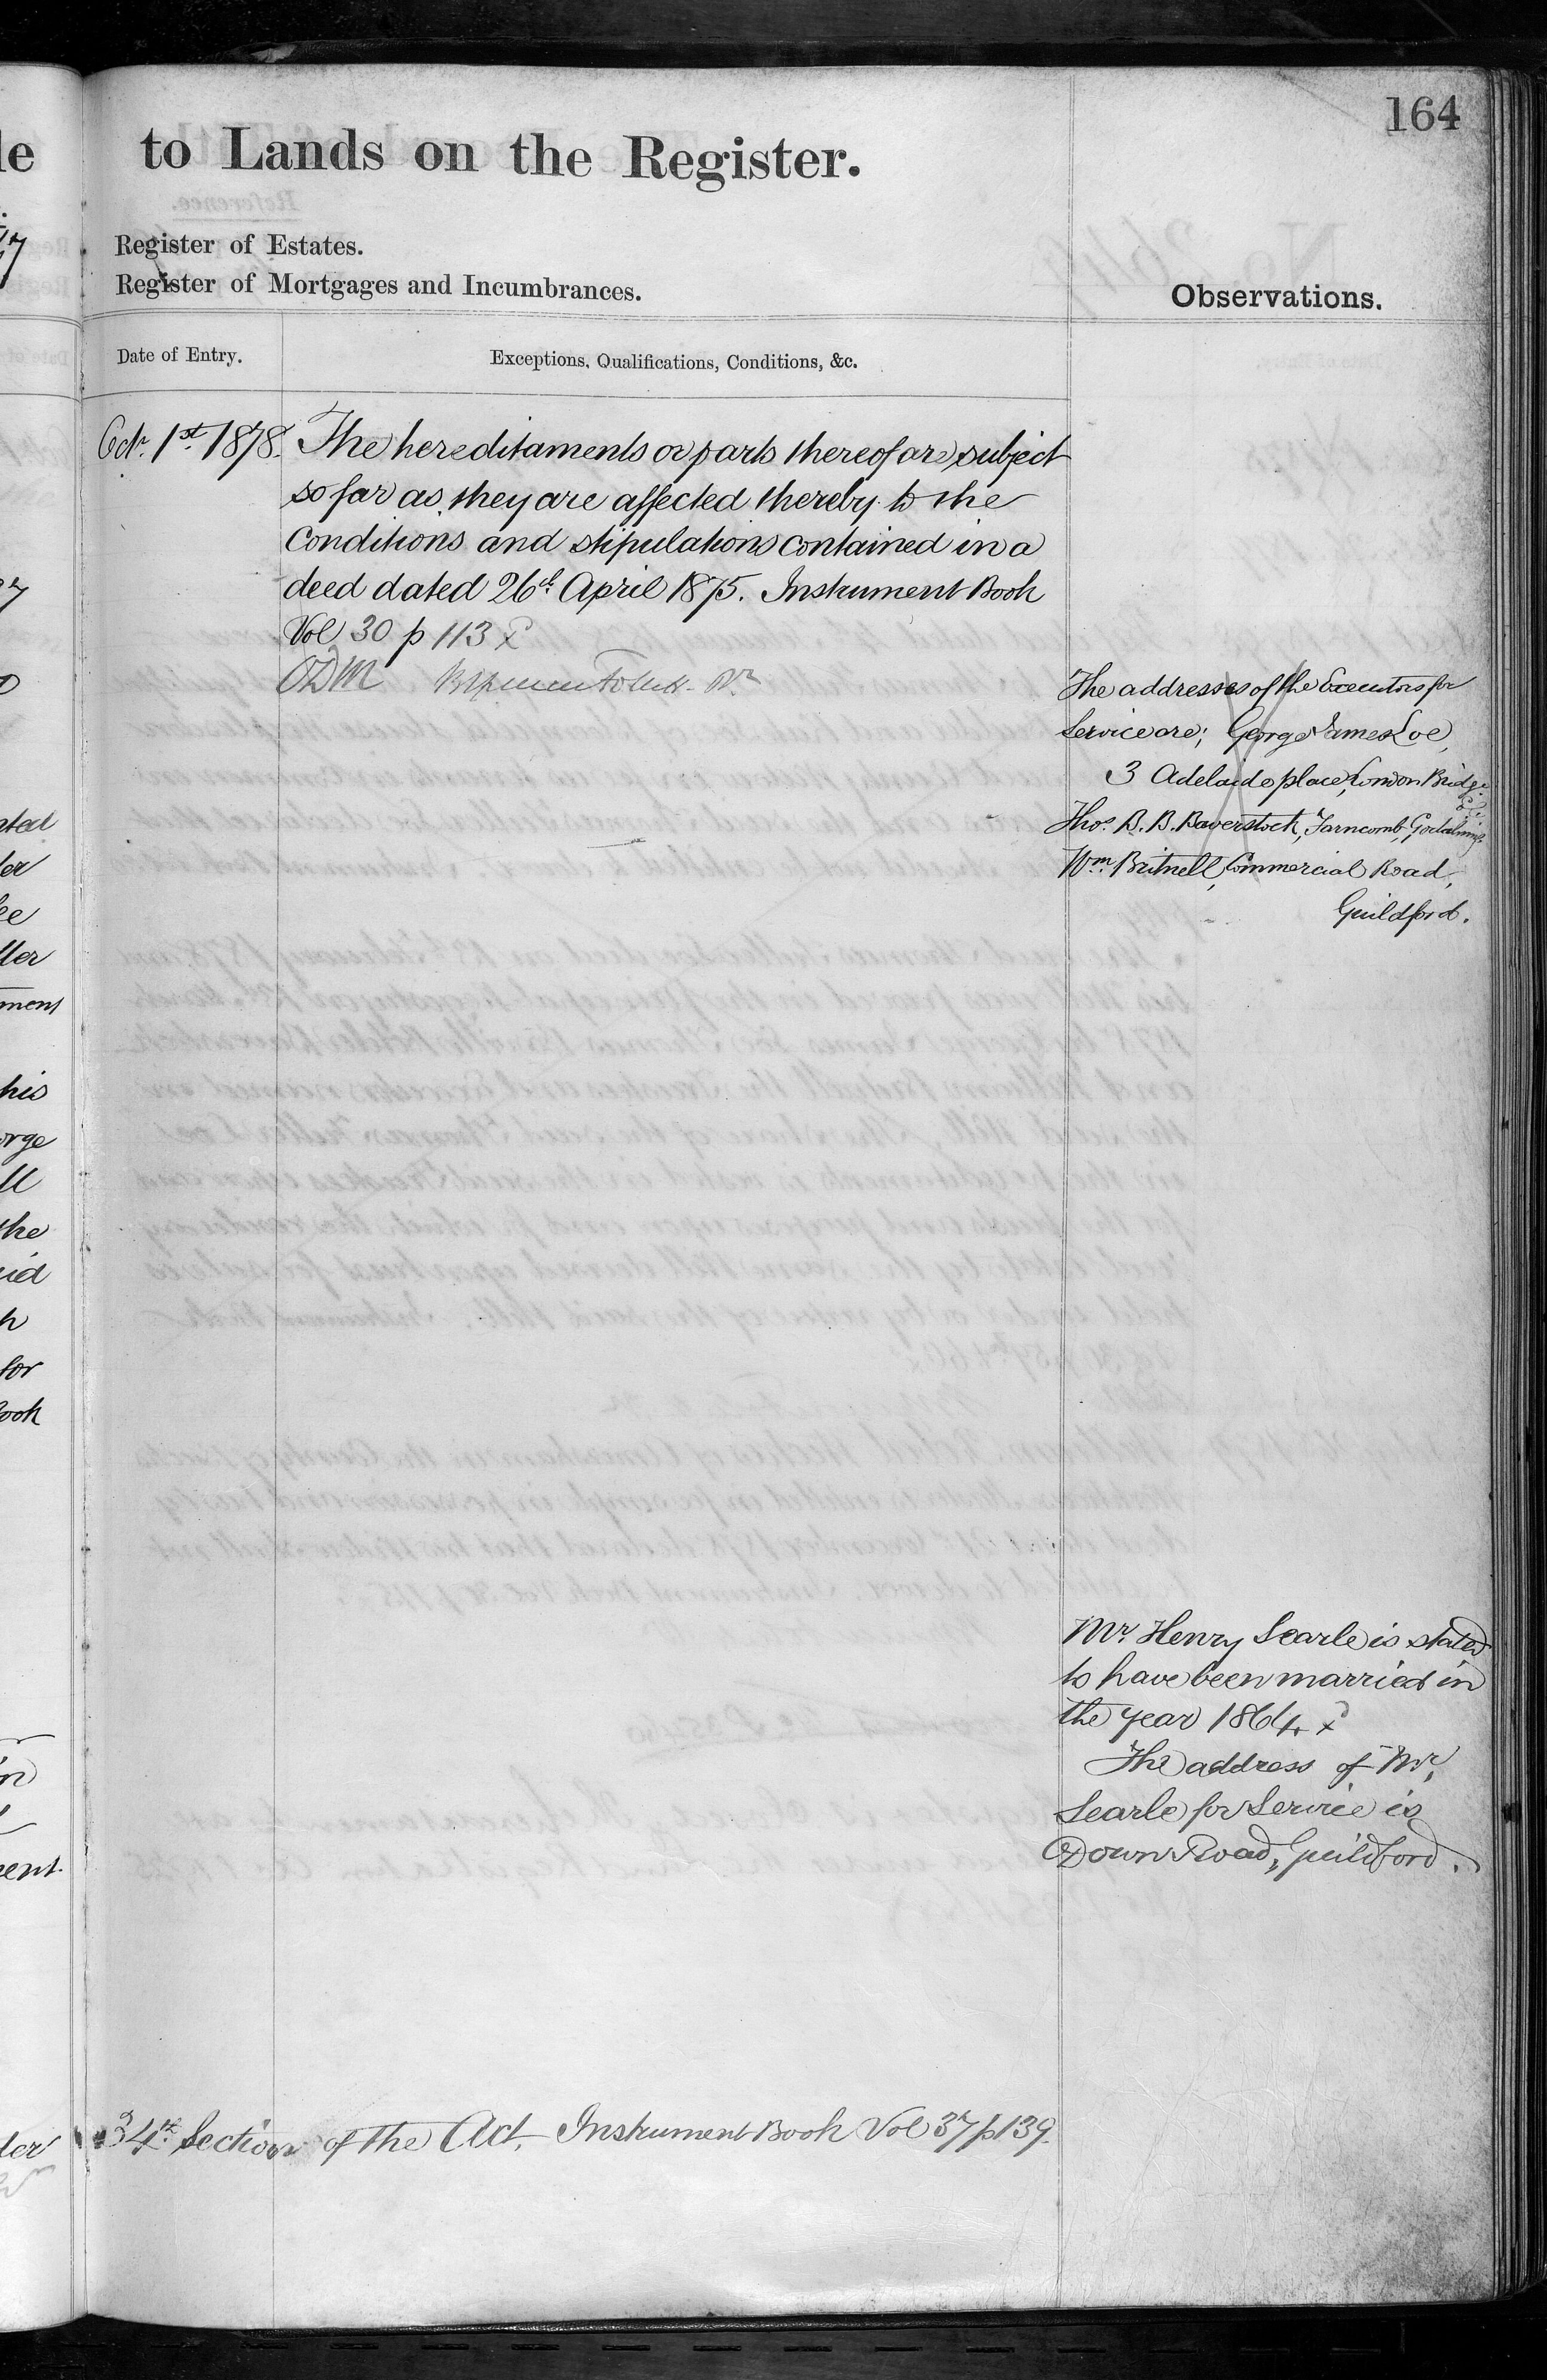 164
to Lands on the Register.
Register of Estates.
Register of Mortgages and Incumbrances.
Observations.
Date of Entry.
Exceptions, Qualifications, Conditions, &c.
Octr. 1st. 1878.
The hereditaments or parts thereof are subject
so far as they are affected thereby to the
Conditions and stipulations contained in a
deed dated 26th April 1875. Instrument Book
Vol 30 p 113
The addresses of the Executors for
Service are; George James Loe,
3 Adelaide place, London Bridge
Thos. B. B. Baverstock, Farncomb, Godalming
Wm. Britnell, Commercial Road,
Guildford.
Mr. Henry Searle is stated
to have been married in
the year 1864
The address of Mr.
Searle for Service is
Down Road, Guildford.
34th Section of the Act. Instrument Book Vol 37 p 139.
ated
ler
ment
his
orge
ll
the
h
for
ook
ler